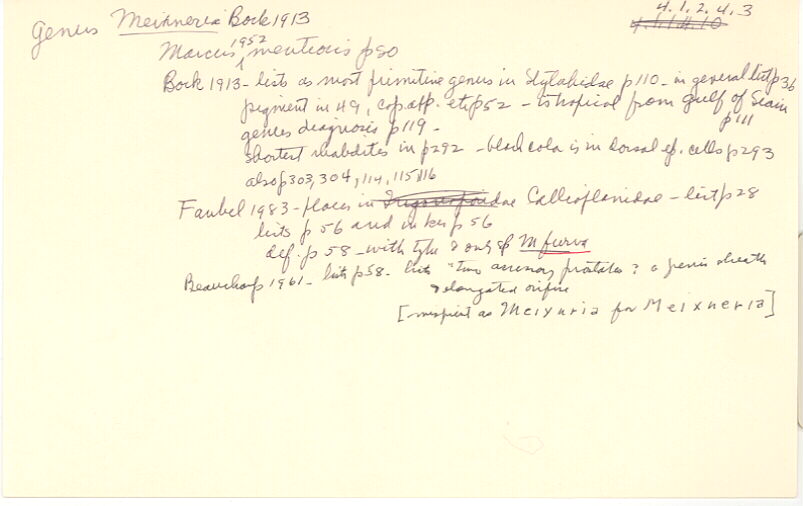 4.1.2.4.3
Genus Meixneria Bock 1913
Marcus 1952 mentions p 90
Bock 1913 - lists as most primitive genus in Stylochidae p110 - in general list p 36
pigment in 49, cop. app. etc p52 - is tropical from Gulf of Siam
p 111
genus diagnosis p119 -
shortest rhabdites in p292 - black cola is in dorsal ep. cells p293
also p303, 304, 114, 115, 116
Faubel 1983 - places in Callioplanidae - list p28
lists p 56 and in key p 56
def. p 58 - with type & only sp M furva
Beauchamp 1961 - lists p58 - lists "two accessory prostates? a penis sheath
& elongated orifice
[misprint as Meixnria for Meixneria]